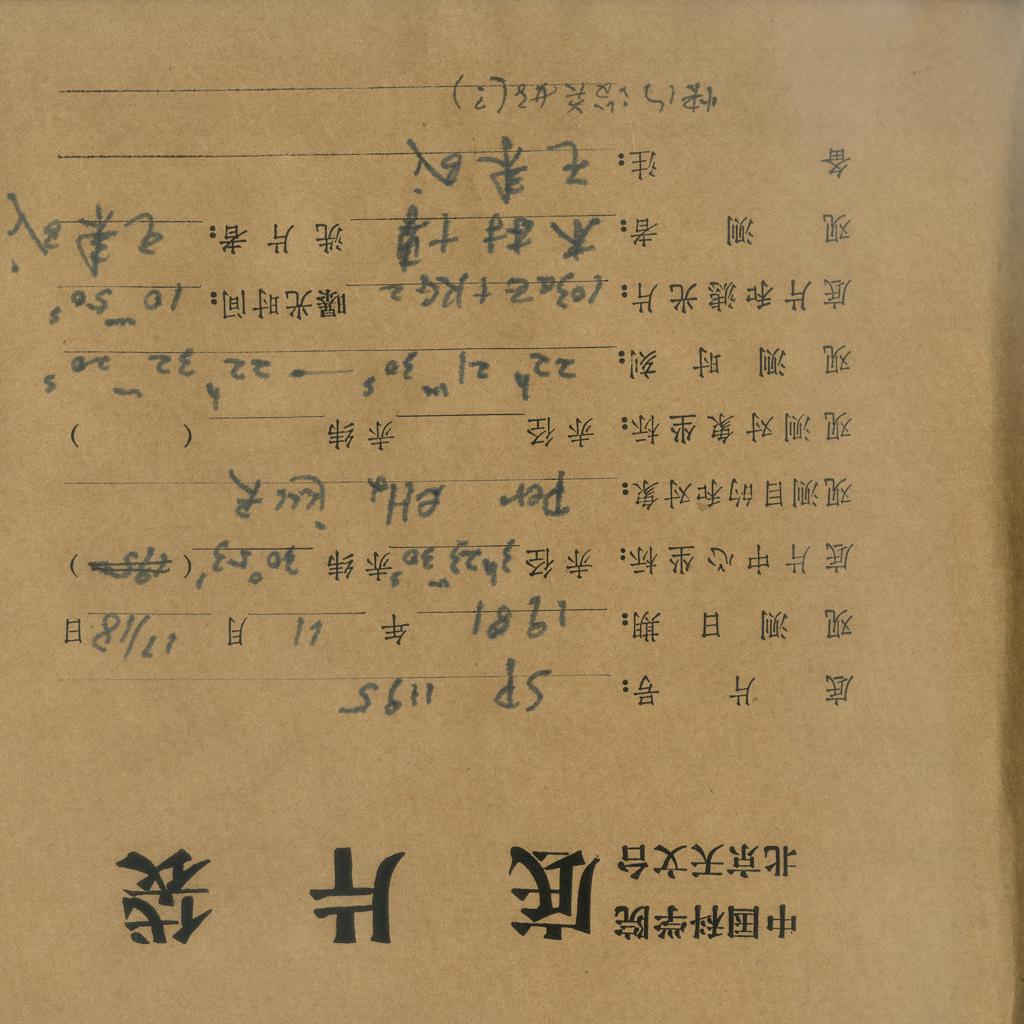 中国科学院
北京天文台
底片袋
底片号: SP 1195
观测日期: 1981 年 11 月 17/18 日
底片中心坐标: 赤径 3h23m30s 赤纬 30°53′ ( )
观测目的和对象: Per
观测对象坐标: 赤径 赤纬 ( )
观测时刻: 22h 21m 30s — 22h 32m 20s
底片和滤光片: 103aE+RG2 曝光时间: 10m 50s
观测者: 洗片者:
备注: